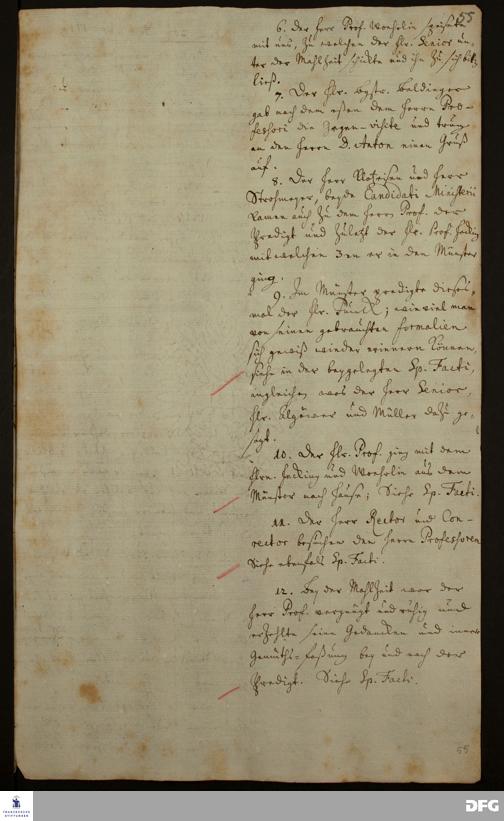 55
6. Der Herr Prof. Woehrlin speisete
mit uns, zu welchen der Hr. Senior un-
ter der Mahlzeit schickte und ihn zu sich bitten
ließ.
7. Der Hr. Baldinger
gab nach dem eßen dem Herrn Pro-
fessori die Gegen-visite und trug
an den Herrn D. Anton einen Gruß
auf.
8. Der Herr und Herr
Strohmeyer, beyde Candidati Ministerii
kamen auch zu dem Herrn Prof. vor der
Predigt und zuletzt der Hr. Prof.
mit welchen 3en er in den Münster
ging.
9. Im Münster predigte dieses-
mal der Hr. ; wie viel man
von seinen gebrauchten formalien
sich gewiß wieder erinnern können,
siehe in der beygelegten Sp. Facti,
imgleichen was der Herr Senior,
Hr. Algöwer und Müller dazu ge-
sagt.
10. Der Hr. Prof. ging mit dem
Hrn. und Woehrlin aus dem
Münster nach Hause; Siehe Sp. Facti.
11. Der Herr Rector und Con-
rector besuchen den Herrn Professoren
Siehe ebenfals Sp. Facti.
12. Bey der Mahlzeit war der
Herr Prof. vergnügt und ruhig und
erzehlte seine Gedancken und innere
Gemüths-faßung bey und nach der
Predigt. Siehe Sp. Facti.
55
FRANCKESCHE
STIFTUNGEN
DFG